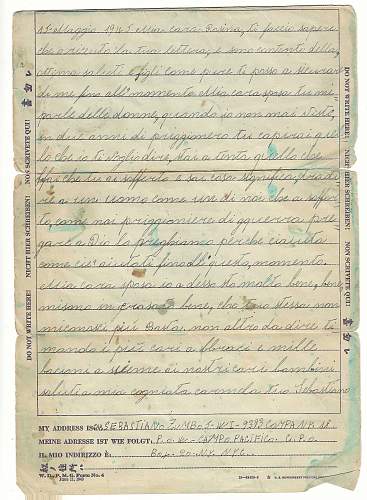 Maggio 1945 Mia cara Rosina, ti faccio sapere
che o ricevuto la tua lettera, e sono contento della
ottima saluti e figli come pure ti posso assicurare
di me fino all'momento Mia cara sposa tu mi
parle delle donne, quando io non mai visto,
in due anni di priggioniero tu capirai quel
lo che io ti voglio dire, stai a tenta quello che
che tu ai sofferto e sai cosa significa, tradi
re a un uomo come un di noi che a soffer
to, come noi priggionieri di gguerra pre
gare a Dio la preghiamo perche ci assista
come ci a aiutati finoall questo, momento.
Mia cara sposa io a desso sto molto bene, ben
misano in crasso bene, che tu stessa non
miconosci più Basta, non altro da dire ti
mando i più cari abbracci e mille
bacioni a sieme ai nostri cari bambini
saluti a mia cognata carmela tuo Sebastiano
DO NOT WRITE HERE! NICHT HIER SCHREIBEN! NON SCRIVETE QUI!
DO NOT WRITE HERE! NICHT HIER SCHREIBEN! NON SCRIVETE QUI!
MY ADDRESS IS: SEBASTIANO ZUMBO I-WI-9393 COMPANY 18
MEINE ADRESSE IST WIE FOLGT: P.O.W. CAMPO PACIFICO. G.P.O
IL MIO INDIRIZZO È: Box 20. N.Y. N.Y.C.
W. D., P. M. G. Form No. 4
JUNE 11, 1943